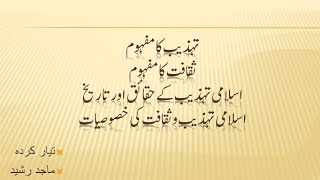 تہذیب کا مفہوم
ثقافت کا مفہوم
اسلامی تہذیب کے حقائق اور تاریخ
اسلامی تہذیب و ثقافت کی خصوصیات
تیار کردہ
ماجد رشید